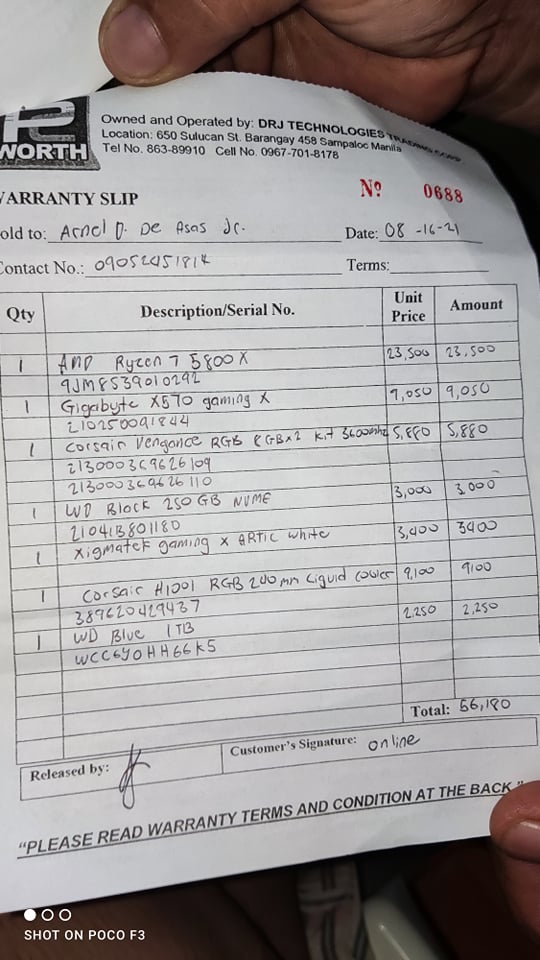 WORTH
Owned and Operated by: DRJ TECHNOLOGIES TRADING CORP
Location: 650 Sulucan St. Barangay 458 Sampaloc Manila
Tel No. 863-89910 Cell No. 0967-701-8178
ARRANTY SLIP
Nº 0688
old to: Arnel D. De Asas Jr. Date: 08-16-21
Contact No.: 09052451814 Terms:
Qty Description/Serial No. Unit Price Amount
1 AMD Ryzen 7 5800X 23,500 23,500
9JM8539010292
1 Gigabyte X570 gaming X 9,050 9,050
210250091844
1 Corsair Vengance RGB 8GBx2 kit 3600mhz 5,880 5,880
213000369626109
213000369626110
1 WD Black 250 GB NVME 3,000 3,000
21041B801180
1 Xigmatek gaming X ARTIC white 3,400 3400
1 Corsair H100i RGB 240mm Liquid cooler 9,100 9100
389620429437
1 WD Blue 1TB 2,250 2,250
WCC6Y0HH66K5
Total: 56,180
Released by: Customer's Signature: online
"PLEASE READ WARRANTY TERMS AND CONDITION AT THE BACK."
SHOT ON POCO F3